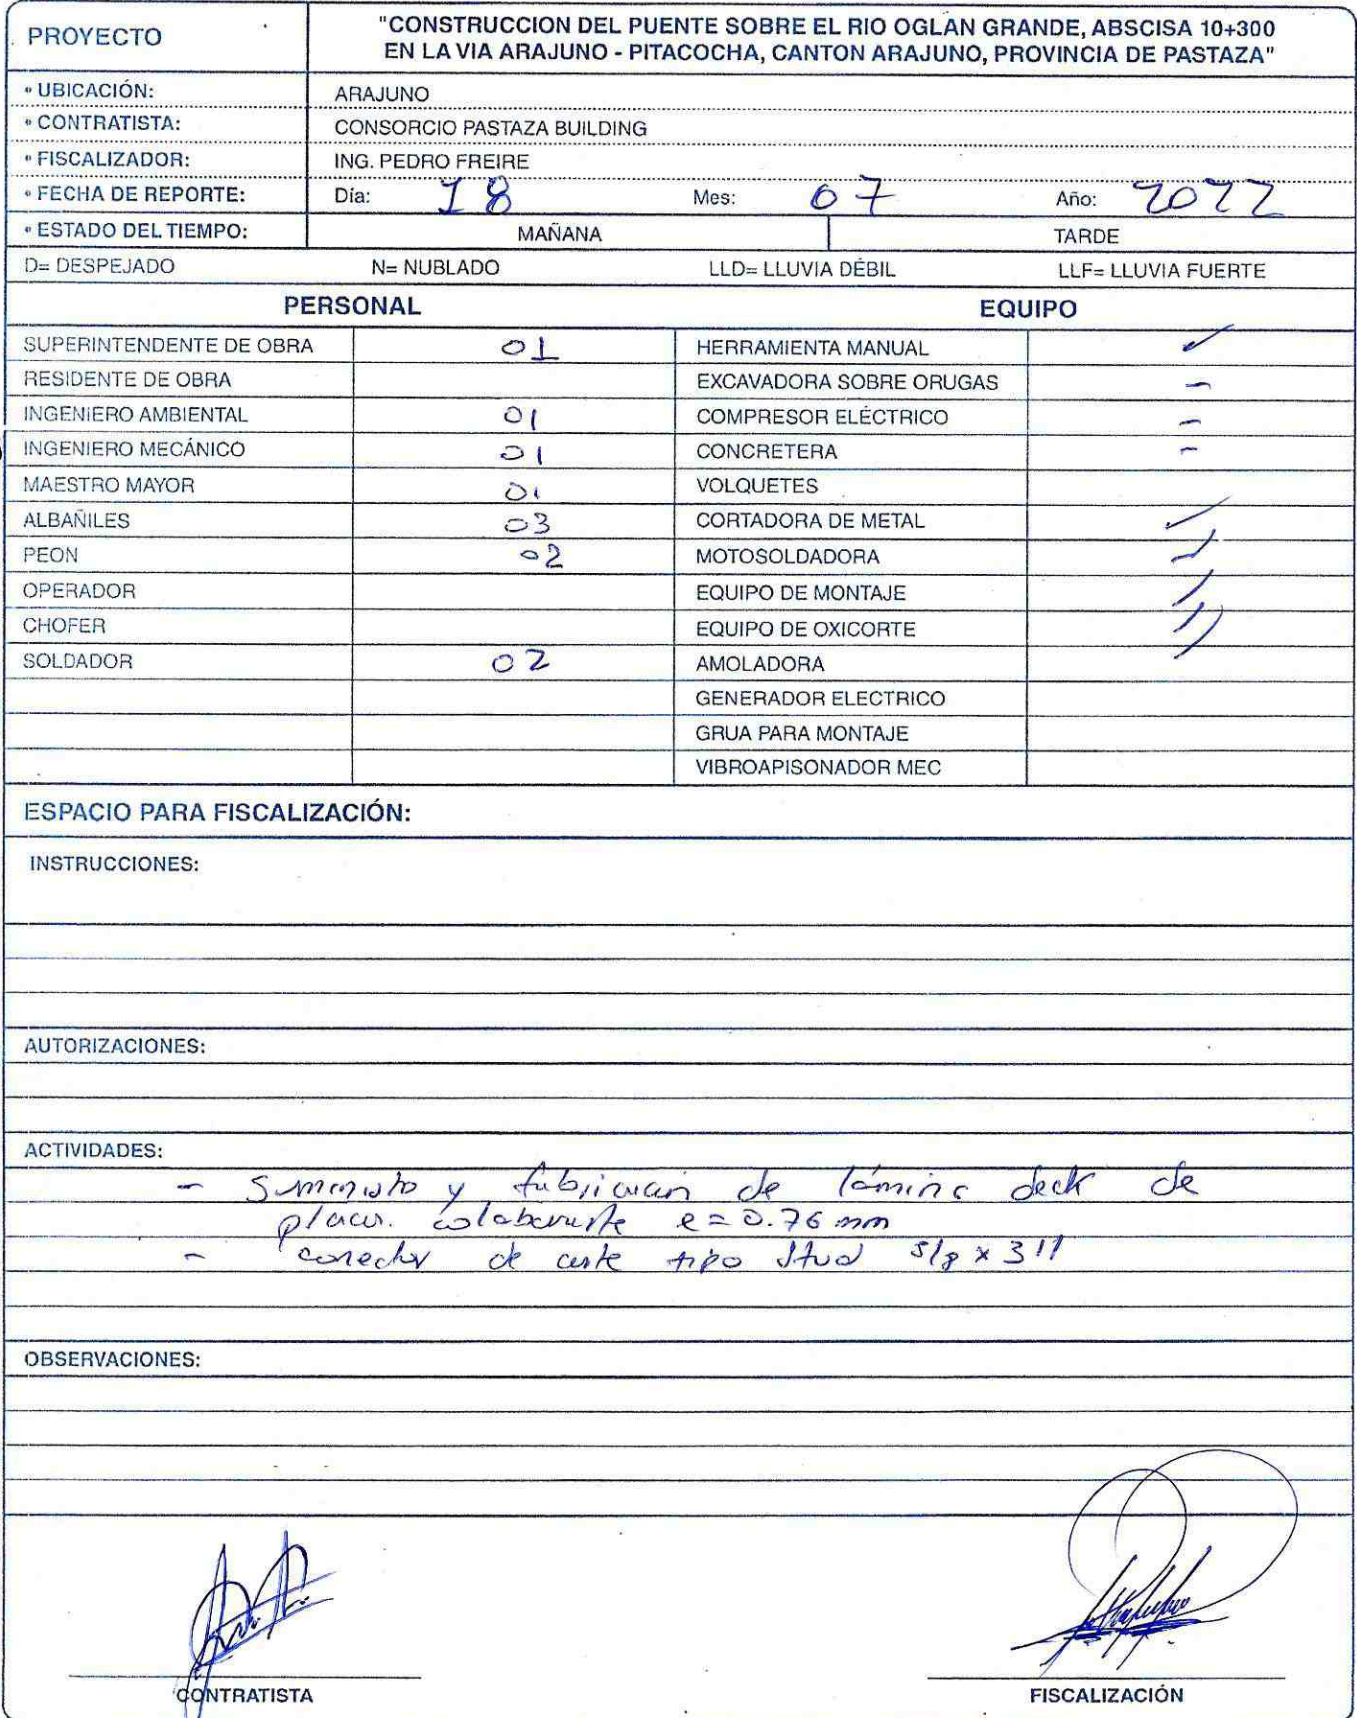 PROYECTO
"CONSTRUCCION DEL PUENTE SOBRE EL RIO OGLAN GRANDE, ABSCISA 10+300
EN LA VIA ARAJUNO - PITACOCHA, CANTON ARAJUNO, PROVINCIA DE PASTAZA"
• UBICACIÓN: ARAJUNO
• CONTRATISTA: CONSORCIO PASTAZA BUILDING
• FISCALIZADOR: ING. PEDRO FREIRE
• FECHA DE REPORTE: Día: 18 Mes: 07 Año: 2022
• ESTADO DEL TIEMPO: MAÑANA TARDE
D= DESPEJADO N= NUBLADO LLD= LLUVIA DÉBIL LLF= LLUVIA FUERTE
PERSONAL EQUIPO
SUPERINTENDENTE DE OBRA 01 HERRAMIENTA MANUAL ✓
RESIDENTE DE OBRA EXCAVADORA SOBRE ORUGAS -
INGENIERO AMBIENTAL 01 COMPRESOR ELÉCTRICO -
INGENIERO MECÁNICO 01 CONCRETERA -
MAESTRO MAYOR 01 VOLQUETES
ALBAÑILES 03 CORTADORA DE METAL ✓
PEON 02 MOTOSOLDADORA ✓
OPERADOR EQUIPO DE MONTAJE ✓
CHOFER EQUIPO DE OXICORTE ✓
SOLDADOR 02 AMOLADORA ✓
GENERADOR ELECTRICO
GRUA PARA MONTAJE
VIBROAPISONADOR MEC
ESPACIO PARA FISCALIZACIÓN:
INSTRUCCIONES:
AUTORIZACIONES:
ACTIVIDADES:
- Suministo y fabricacion de lámina deck de
placa colaborante e = 0.76 mm
- conector de corte tipo Stud 5/8 x 3"
OBSERVACIONES:
CONTRATISTA FISCALIZACIÓN